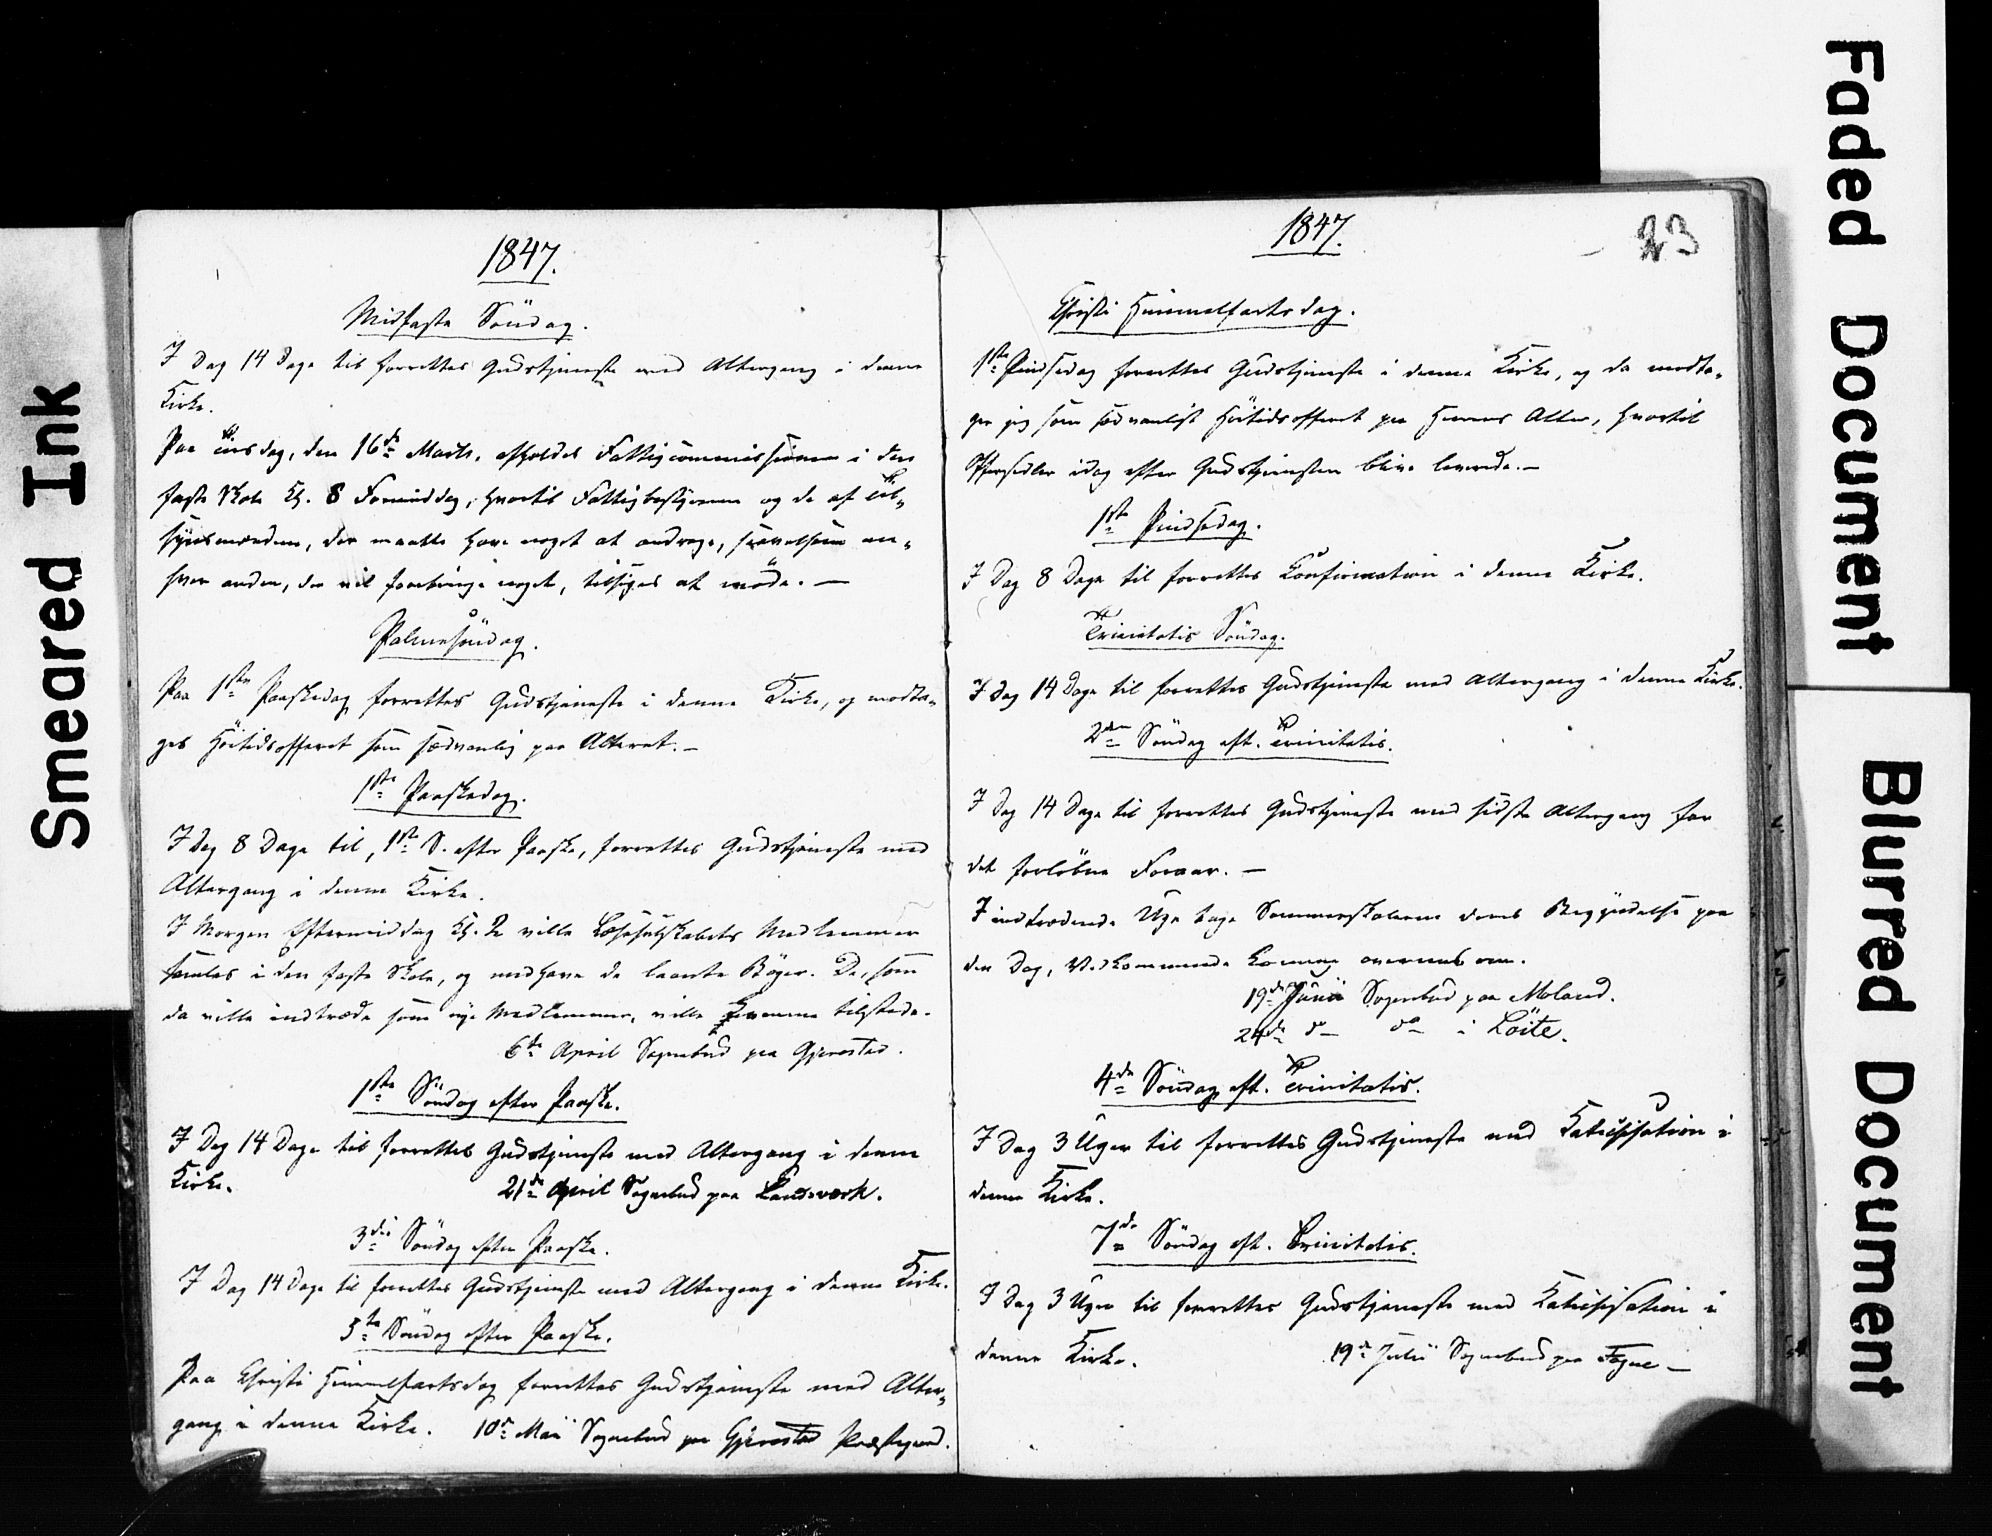 Smeared Ink
1847.
Midfaste Söndag.
I Dag 14 Dage til forrettes Gudstjeneste med Altergang i denne
Kirke.
Paa Tirsdag, den 16de Marts, afholdes Fattigcommissionen i den
faste Skole Kl. 8 Formiddag, hvortil Fattigbestyrerne og de af Til-
synsmændene, der maatte have noget at andrage, saavelsom en-
hver anden, der vil frembringe noget, tilsiges at möde. —
Palmesöndag.
Paa 1ste Paaskedag forrettes Gudstjeneste i denne Kirke, og modta-
ges Höitidsofferet som sædvanlig paa Alteret. —
1ste Paaskedag.
I Dag 8 Dage til, 1ste S. efter Paaske, forrettes Gudstjeneste med
Altergang i denne Kirke.
I Morgen Eftermiddag Kl. 2 ville Læseselskabets Medlemmer
samles i den faste Skole, og medhave de laante Böger. De, som
da ville indtræde som nye Medlemmer, ville komme tilstede.
6te April Sognebud paa Gjerestad.
1ste Söndag efter Paaske.
I Dag 14 Dage til forrettes Gudstjeneste med Altergang i denne
Kirke.
21de April Sognebud paa Landsværk.
3die Söndag efter Paaske.
I Dag 14 Dage til forrettes Gudstjeneste med Altergang i denne Kirke.
5te Söndag efter Paaske.
Paa Christi Himmelfartsdag forrettes Gudstjeneste med Alter-
gang i denne Kirke. 10de Mai Sognebud paa Gjerestad Præstegaard.
1847.
23
Christi Himmelfartsdag.
1ste Pindsedag forrettes Gudstjeneste i denne Kirke, og da modta-
ger jeg som sædvanligt Höitidsofferet paa Herrens Alter, hvortil
Offersedler idag efter Gudstjenesten blive leverede. —
1ste Pindsedag.
I Dag 8 Dage til forrettes Confirmation i denne Kirke.
Trinitatis Söndag.
I Dag 14 Dage til forrettes Gudstjeneste med Altergang i denne Kirke.
2den Söndag eft. Trinitatis.
I Dag 14 Dage til forrettes Gudstjeneste med sidste Altergang for
det forlöbne Foraar. —
I indtrædende Uge tage Sommerskolerne deres Begyndelse paa
den Dag, Vedkommende komme overens om.
19de Junii Sognebud paa Moland.
24de do do i Löite.
4de Söndag eft. Trinitatis.
I Dag 3 Uger til forrettes Gudstjeneste med Katechisation i
denne Kirke.
7de Söndag eft. Trinitatis.
I Dag 3 Uger til forrettes Gudstjeneste med Katechisation i
denne Kirke.
19de Julii Sognebud paa Fogne —
Faded Document
Blurred Document